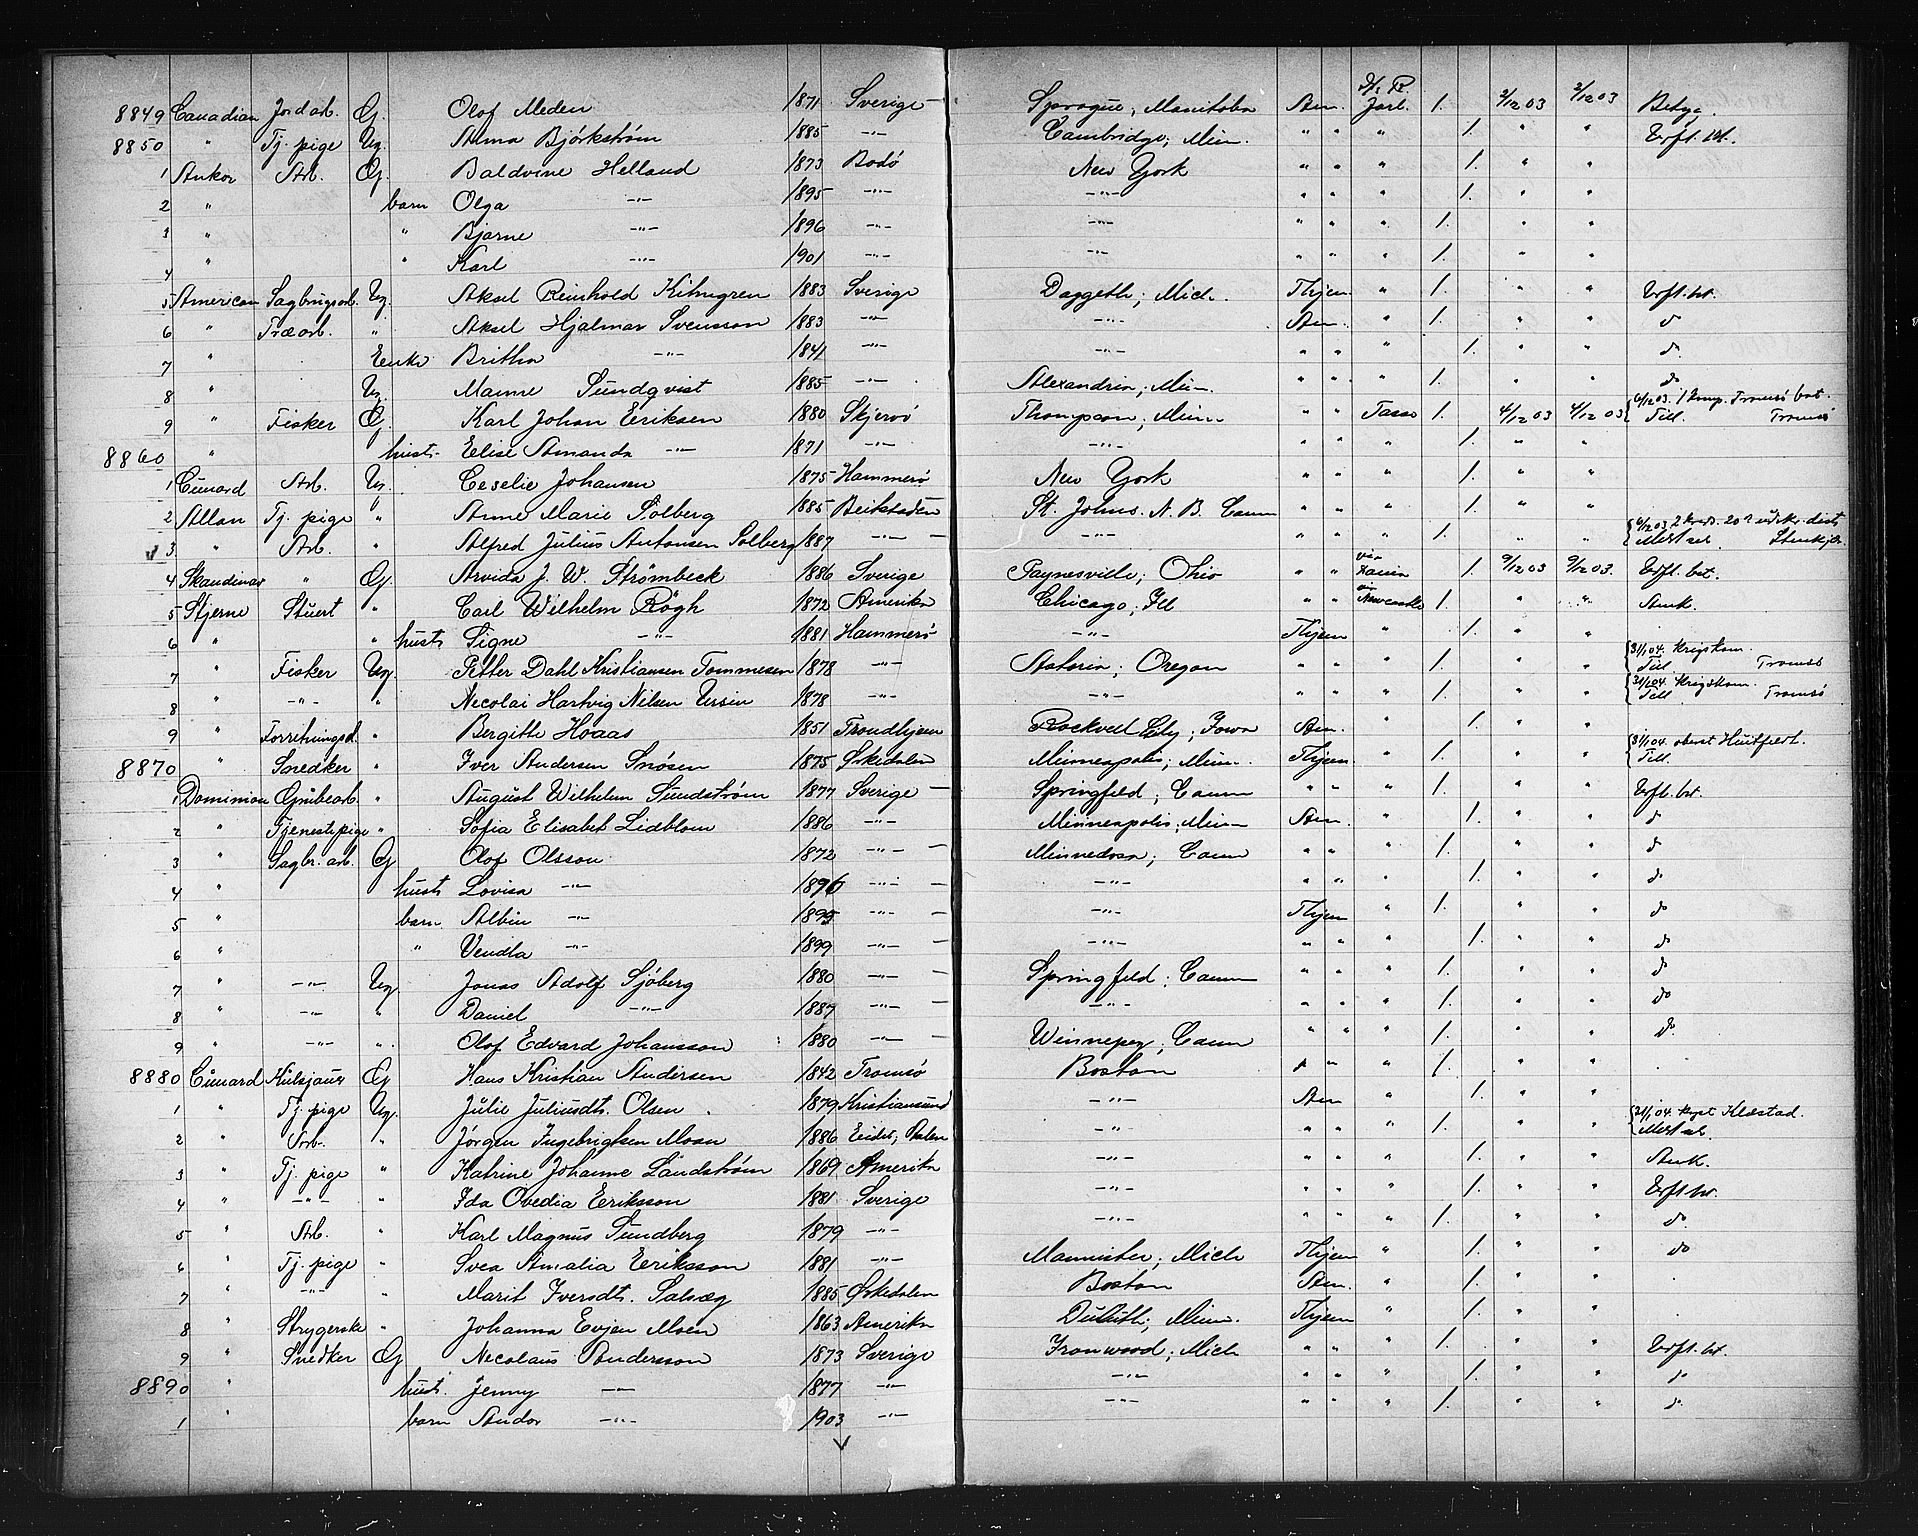 8849 Canadian Jordarb. G. Olof Meden 1871 Sverige Sprague; Manitoba Am. Jarl 1. 2/12 03 2/12 03 Betyg
8850 " Tj. pige Ug. Anna Bjørkstrøm 1885 -"- Cambridge; Min. " " " 1. " " Erft. bt.
1 Ankor Arb. G. Baldvine Helland 1873 Bodø New York " " " 1. " "
2 " barn Olga -"- 1895 -"- -"- " " " 1. " "
3 " " Bjarne -"- 1896 -"- -"- " " " 1. " "
4 " " Karl -"- 1901 -"- -"- " " " 1. " "
5 American Sagbrugsarb. Ug. Aksel Reinhold Kilmgren 1883 Sverige Daggeth; Mich. Thjem " 1. " " Erft. bt.
6 " Træarb. " Aksel Hjalmar Svensson 1883 -"- -"- Am. " 1. " " do
7 " Enke Britha -"- 1841 -"- -"- " " " 1. " " do
8 " Ug. Manne Sundqvist 1885 -"- Alexandria; Min. " " " 1. " " do
9 " Fisker G. Karl Johan Eriksen 1880 Skjervø Thompson; Minn " " Tasso 1. 4/12 03 4/12 03 6/12 03. 1 komp. Tromsø bat. Till. Tromsø
8860 " hust. Elise Amanda -"- 1871 -"- " " " 1. " "
1 Cunard Arb. Ug. Ceselie Johansen 1875 Hammerø New York " " " 1. " "
2 Allan Tj. pige " Anne Marie Solberg 1885 Beitstaden St. Johns. N. B. Cann " " " 1. " "
3 " Arb. " Alfred Julius Antonsen Solberg 1887 -"- -"- " " " 1. " " Stenkjær
4 Skandinav " G. Arvida J. W. Strømbeck 1886 Sverige Paynesville; Ohio " " via 1. 9/12 03 9/12 03. Erft. bet.
5 Stjerne Stuert " Carl Wilhelm Rögh 1872 Amerika Chicago; Ill " " via Newcastle 1. " " Amk.
6 " " hust. Signe -"- 1881 Hammerø -"- Thjem " 1. " "
7 " Fisker Ug. Petter Dahl Kristiansen Tommesen 1878 -"- Astoria; Oregon " " " 1. " " 31/1 04. Krigskom. Till Tromsø
8 " -"- " Necolai Hartvig Nilsen Ursin 1878 -"- -"- " " " 1. " " 31/1 04. Krigskom. Till Tromsø
9 " Forretningsd. " Bergitte Hoaas 1851 Trondhjem Rockvell City; Iowa Am. " 1. " "
8870 " Snedker " Iver Andersen Snøsen 1875 Ørkedalen Minneapolis; Minn. Thjem " 1. " " 31/1 04. oberst Huitfeldt. Till.
1 Dominion Grubearb. " August Wilhelm Sundstrøm 1877 Sverige Springfeld; Cann " " " 1. " " Erft. bt.
2 " Tjenestepige " Sofia Elisabet Lidblom 1886 -"- Minneapolis; Min Am. " 1. " " do
3 " Sagbr. arb. G Olof Olsson 1872 -"- Minnedosa; Cann " " " 1. " " do
4 " hust Lovisa -"- 1876 -"- -"- " " " 1. " " do
5 " barn Albin -"- 1895 -"- -"- Thjem " 1. " " do
6 " " Vendla -"- 1899 -"- -"- " " " 1. " " do
7 " -"- Ug Jonas Adolf Sjøberg 1880 -"- Springfeld; Cann " " " 1. " " do
8 " -"- " Daniel -"- 1887 -"- -"- " " " 1. " " do
9 " -"- " Olof Edvard Johansson 1880 -"- Winnepeg; Cann " " " 1. " " do
8880 Cunard Kulsjauer G Hans Kristian Andersen 1842 Tromsø Boston " " " 1. " "
1 " Tj. pige Ug. Julie Juliusdt. Olsen 1879 Kristiansund -"- Am " 1. " "
2 " Arb. " Jørgen Ingebrigtsen Moan 1886 -"- " " " 1. " " 21/1 04. kapt. Klæstad.
3 " Tj. pige " Katrine Johanne Landstrøm 1869 Amerika -"- " " " 1. " " Amk.
4 " -"- " Ida Ovedia Eriksson 1881 Sverige -"- " " " 1. " " Erft bt.
5 " Arb. " Karl Magnus Sundberg 1879 -"- -"- " " " 1. " " do
6 " Tj. pige " Svea Amalia Eriksson 1881 -"- Mannister; Mich Thjem " 1. " " do
7 " -"- " Marit Iversdt. Salvæg 1885 Ørkedalen Boston Am. " 1. " "
8 " Strygerske " Johanna Evjen Moen 1863 Amerika Duluth; Minn. Thjem " 1. " "
9 " Snedker G Necolaus Andersson 1873 Sverige Ironwood; Mich " " 1. " " Erft. bt.
8890 " hust. Jenny -"- 1877 -"- -"- " " " 1. " " do
1 " barn Andor -"- 1903 -"- -"- " " " 1. " " do